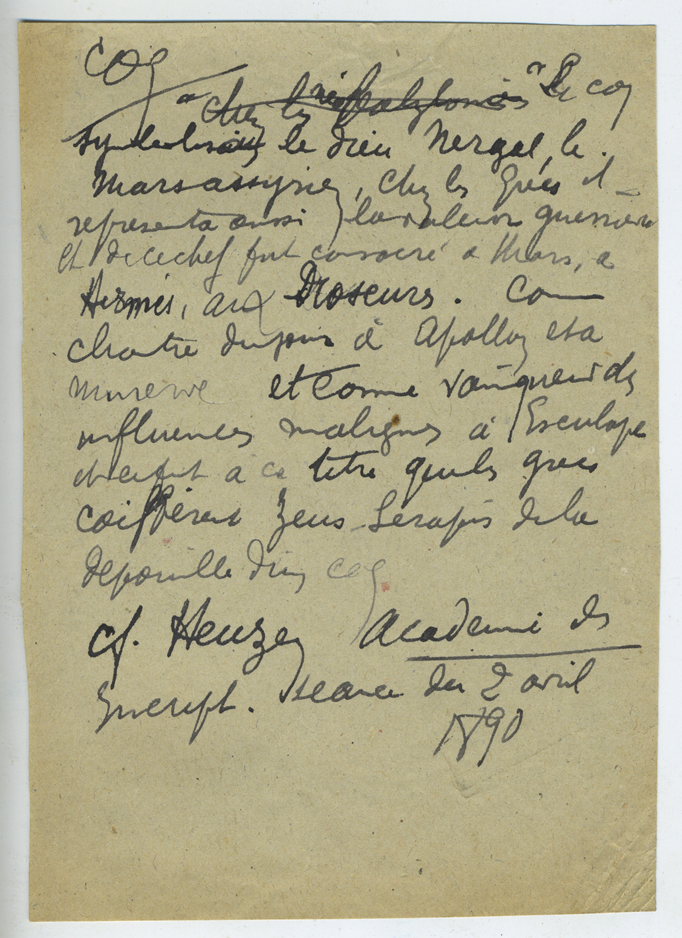 coq
" chez les Babyloniens " Le coq
symbolisait le dieu Nergal, le
Mars assyrien, chez les Grecs il
représenta aussi la valeur guerrière
et de ce chef fut consacré à Mars, à
Hermès, aux Dioscures. Comme
chantre du jour à Apollon et à
Minerve et comme vainqueur des
influences malignes à Esculape
et ce fut à ce titre que les grecs
coiffèrent Zeus-Serapis de la
dépouille d'un coq
cf. Heuzey Académie des
Inscript. séance du 2 avril
1890